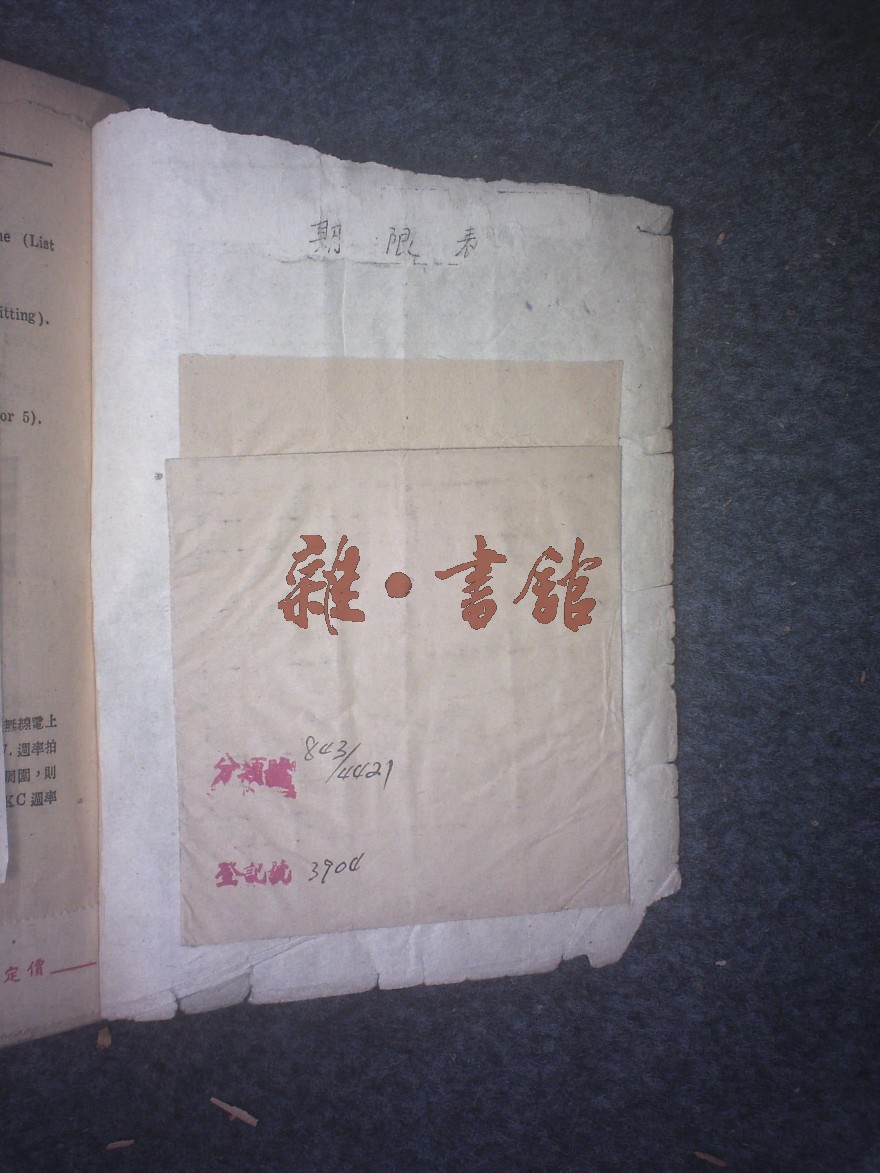 ne (List
itting).
or 5).
無線電上
7. 週率拍
周圍，則
KC 週率
定價
期限表
雜·書館
分類號 843/4421
登記號 3904